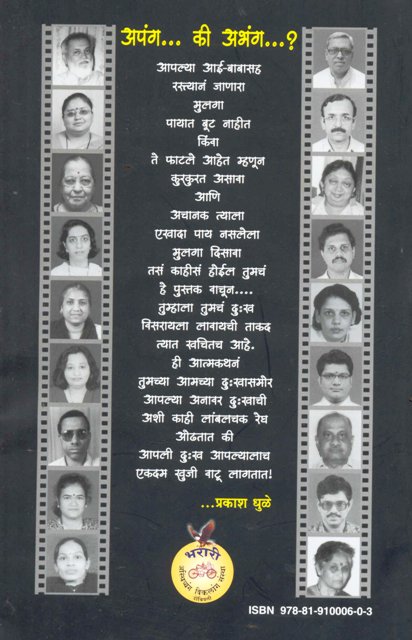 अपंग... की अभंग...?
आपल्या आई-बाबासह
रस्त्यानं जाणारा
मुलगा
पायात बूट नाहीत
किंवा
ते फाटले आहेत म्हणून
कुरकुरत असावा
आणि
अचानक त्याला
एखादा पाय नसलेला
मुलगा दिसावा
तसं काहीसं होईल तुमचं
हे पुस्तक वाचून....
तुम्हाला तुमचं दुःख
विसरायला लावायची ताकद
त्यात खचितच आहे.
ही आत्मकथनं
तुमच्या आमच्या दुःखासमोर
आपल्या अनावर दुःखाची
अशी काही लांबलचक रेघ
ओढतात की
आपली दुःख आपल्यालाच
एकदम खुजी वाटू लागतात!
...प्रकाश धुळे
भरारी
विकलांग संस्था
ISBN 978-81-910006-0-3